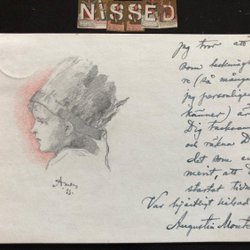 NISSED
jag tror att
som teckning
re (så många
jag personligen
känner) är
Dig tacksam
och räkna D
det som en
merit, att D
startat tids
Var hjärtligt hälsad
Augustin